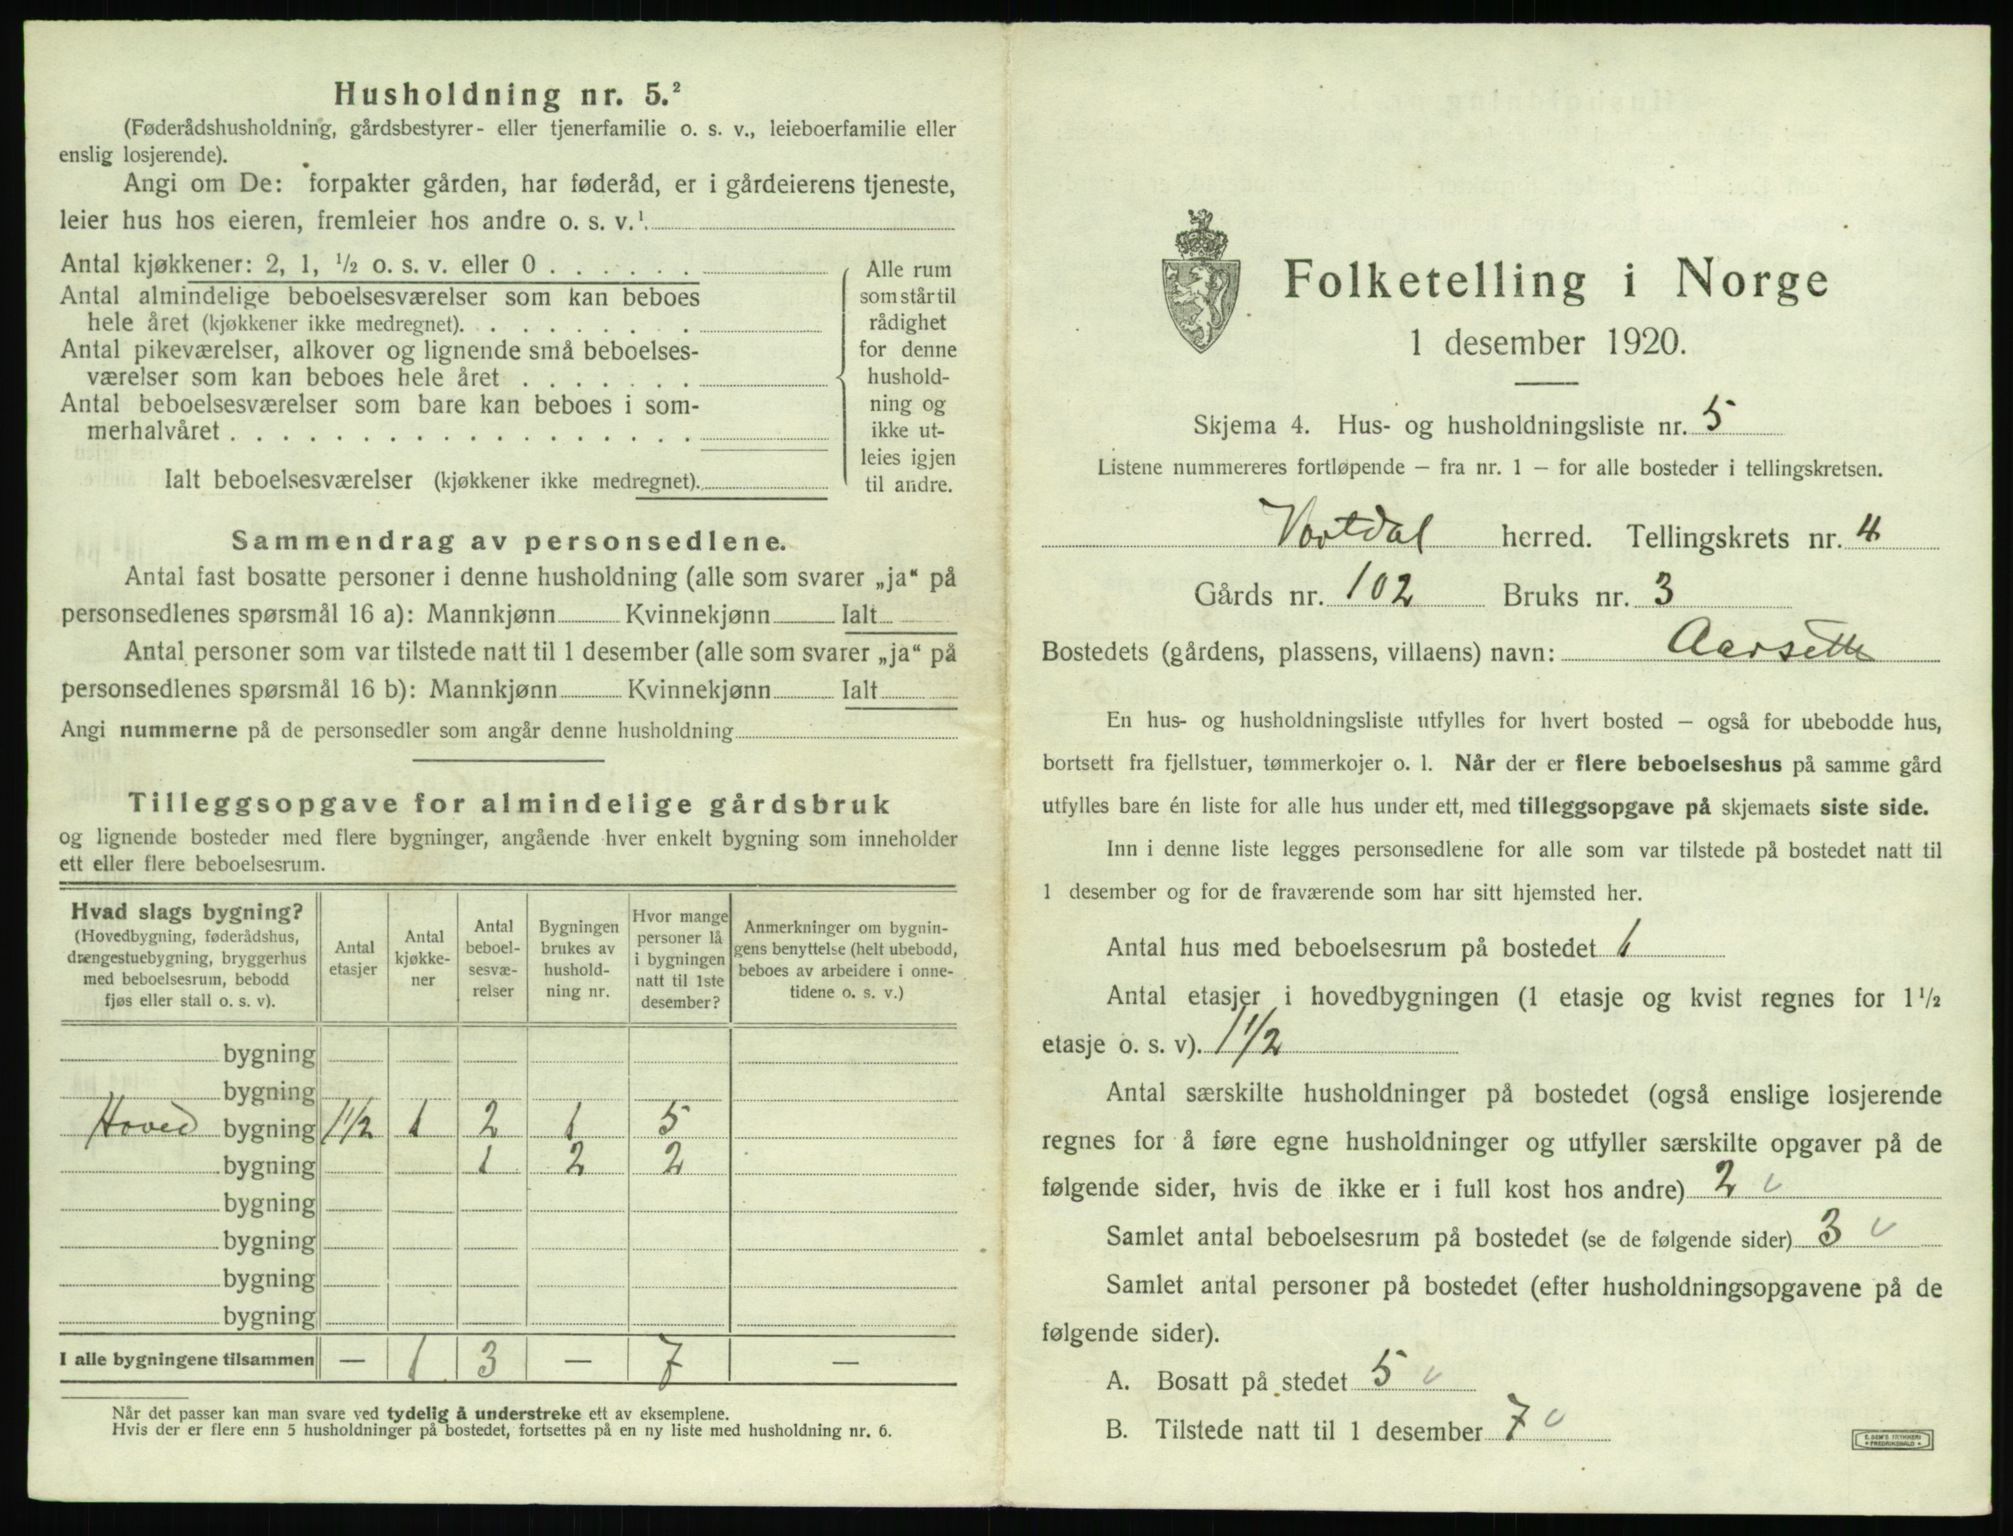 Husholdning nr. 5.²
(Føderådshusholdning, gårdsbestyrer- eller tjenerfamilie o. s. v., leieboerfamilie eller
enslig losjerende).
Angi om De: forpakter gården, har føderåd, er i gårdeierens tjeneste,
leier hus hos eieren, fremleier hos andre o. s. v.¹
Antal kjøkkener: 2, 1, ½ o. s. v. eller 0 . . . . . .
Antal almindelige beboelsesværelser som kan beboes
hele året (kjøkkener ikke medregnet). . . . . . . . .
Antal pikeværelser, alkover og lignende små beboelses-
værelser som kan beboes hele året . . . . . . .
Antal beboelsesværelser som bare kan beboes i som-
merhalvåret . . . . . . . . . . . . . . . . . .
Ialt beboelsesværelser (kjøkkener ikke medregnet).
Alle rum
som står til
rådighet
for denne
hushold-
ning og
ikke ut-
leies igjen
til andre.
Sammendrag av personsedlene.
Antal fast bosatte personer i denne husholdning (alle som svarer „ja“ på
personsedlenes spørsmål 16 a): Mannkjønn Kvinnekjønn Ialt
Antal personer som var tilstede natt til 1 desember (alle som svarer „ja“ på
personsedlenes spørsmål 16 b): Mannkjønn Kvinnekjønn Ialt
Angi nummerne på de personsedler som angår denne husholdning
Tilleggsopgave for almindelige gårdsbruk
og lignende bosteder med flere bygninger, angående hver enkelt bygning som inneholder
ett eller flere beboelsesrum.
Hvad slags bygning?
(Hovedbygning, føderådshus,
drengestuebygning, bryggerhus
med beboelsesrum, bebodd
fjøs eller stall o. s. v).
Antal
etasjer
Antal
kjøkke-
ner
Antal
beboel-
sesvæ-
relser
Bygningen
brukes av
hushold-
ning nr.
Hvor mange
personer lå
i bygningen
natt til 1ste
desember?
Anmerkninger om bygnin-
gens benyttelse (helt ubebodd,
beboes av arbeidere i onne-
tidene o. s. v.)
bygning
bygning
Hoved bygning 1½ 1 2 1 5
bygning 1 2 2
bygning
bygning
bygning
bygning
I alle bygningene tilsammen — 1 3 — 7 —
Når det passer kan man svare ved tydelig å understreke ett av eksemplene.
Hvis der er flere enn 5 husholdninger på bostedet, fortsettes på en ny liste med husholdning nr. 6.
Folketelling i Norge
1 desember 1920.
Skjema 4. Hus- og husholdningsliste nr. 5
Listene nummereres fortløpende — fra nr. 1 — for alle bosteder i tellingskretsen.
Vartdal herred. Tellingskrets nr. 4
Gårds nr. 102 Bruks nr. 3
Bostedets (gårdens, plassens, villaens) navn: Aarseth
En hus- og husholdningsliste utfylles for hvert bosted — også for ubebodde hus,
bortsett fra fjellstuer, tømmerkojer o. l. Når der er flere beboelseshus på samme gård
utfylles bare én liste for alle hus under ett, med tilleggsopgave på skjemaets siste side.
Inn i denne liste legges personsedlene for alle som var tilstede på bostedet natt til
1 desember og for de fraværende som har sitt hjemsted her.
Antal hus med beboelsesrum på bostedet 1
Antal etasjer i hovedbygningen (1 etasje og kvist regnes for 1½
etasje o. s. v). 1½
Antal særskilte husholdninger på bostedet (også enslige losjerende
regnes for å føre egne husholdninger og utfyller særskilte opgaver på de
følgende sider, hvis de ikke er i full kost hos andre) 2
Samlet antal beboelsesrum på bostedet (se de følgende sider) 3
Samlet antal personer på bostedet (efter husholdningsopgavene på de
følgende sider).
A. Bosatt på stedet 5
B. Tilstede natt til 1 desember 7
E. SEM'S TRYKKERI
FREDRIKSHALD